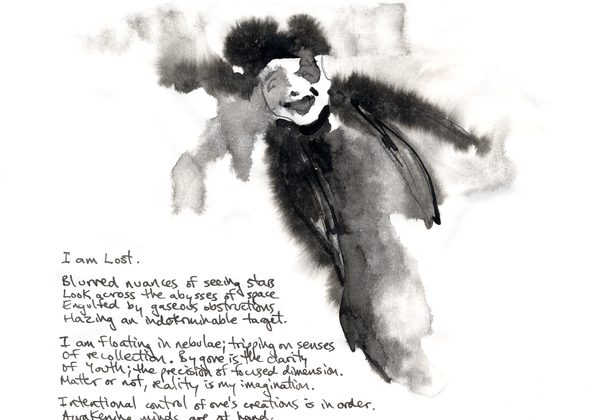 I am Lost.
Blurred nuances of seeing stars
Look across the abysses of space
Engulfed by gaseous obstructions,
Hazing an indeterminable target.
I am floating in nebulae; tripping on senses
Of recollection. By gone is the clarity
Of Youth; the precision of focused dimension.
Matter or not, reality is my imagination.
Intentional control of one's creations is in order.
Awakening minds are at hand.